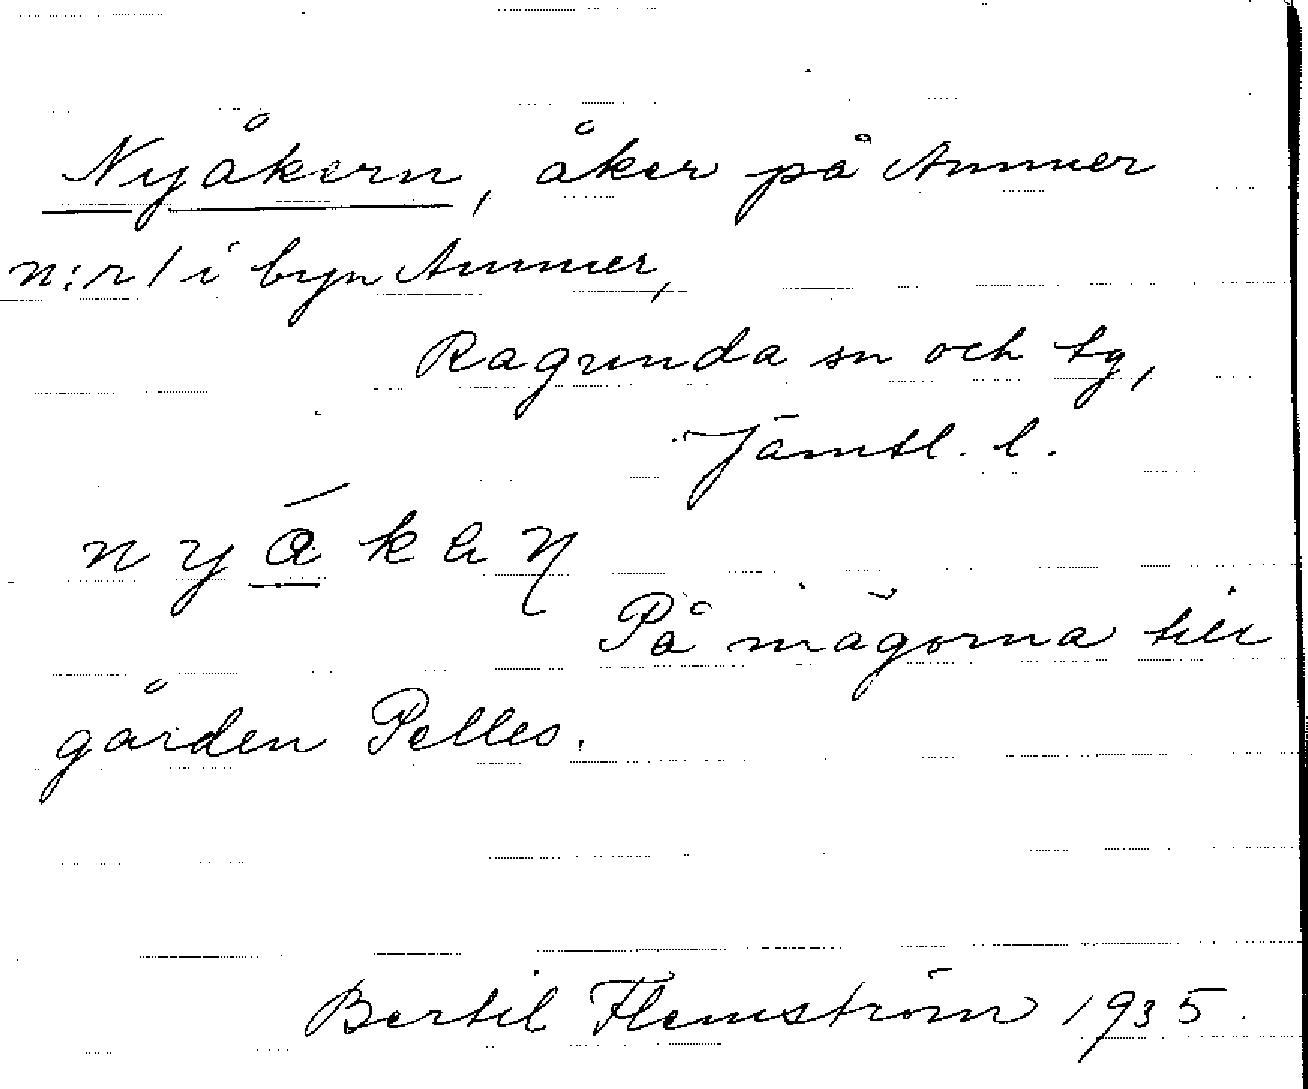 Nyåkern, åker på Ammer
n:r 1 i byn Ammer,
Ragunda sn och tg,
Jämtl. l.
På ägorna till
gården Pelles.
Bertil Flemström 1935.